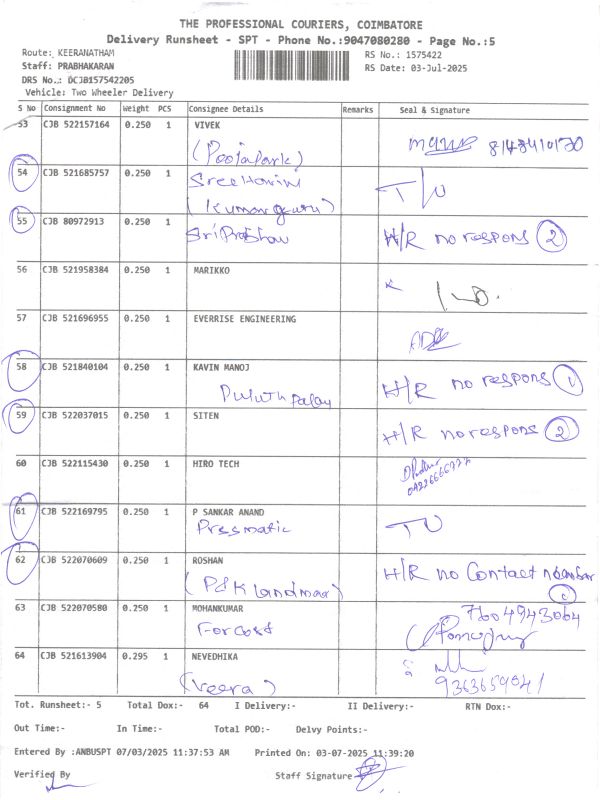 THE PROFESSIONAL COURIERS, COIMBATORE
Delivery Runsheet - SPT - Phone No.:9047080280 - Page No.:5
Route: KEERANATHAM RS No.: 1575422
Staff: PRABHAKARAN RS Date: 03-Jul-2025
DRS No.: DCJB157542205
Vehicle: Two Wheeler Delivery
S No Consignment No Weight PCS Consignee Details Remarks Seal & Signature
53 CJB 522157164 0.250 1 VIVEK
(Poojapark)
54 CJB 521685757 0.250 1 Sree Harini
(Kumarguru)
55 CJB 80972913 0.250 1 H/R no respons 2
56 CJB 521958384 0.250 1 MARIKKO
57 CJB 521696955 0.250 1 EVERRISE ENGINEERING
58 CJB 521840104 0.250 1 KAVIN MANOJ H/R no respons 1
59 CJB 522037015 0.250 1 SITEN H/R no respons 2
60 CJB 522115430 0.250 1 HIRO TECH
61 CJB 522169795 0.250 1 P SANKAR ANAND
Pressmatic
62 CJB 522070609 0.250 1 ROSHAN H/R no Contact number
63 CJB 522070580 0.250 1 MOHANKUMAR 7604943064
Forcost
64 CJB 521613904 0.295 1 NEVEDHIKA
(Veera)
Tot. Runsheet:- 5 Total Dox:- 64 I Delivery:- II Delivery:- RTN Dox:-
Out Time:- In Time:- Total POD:- Delvy Points:-
Entered By :ANBUSPT 07/03/2025 11:37:53 AM Printed On: 03-07-2025 11:39:20
Verified By Staff Signature